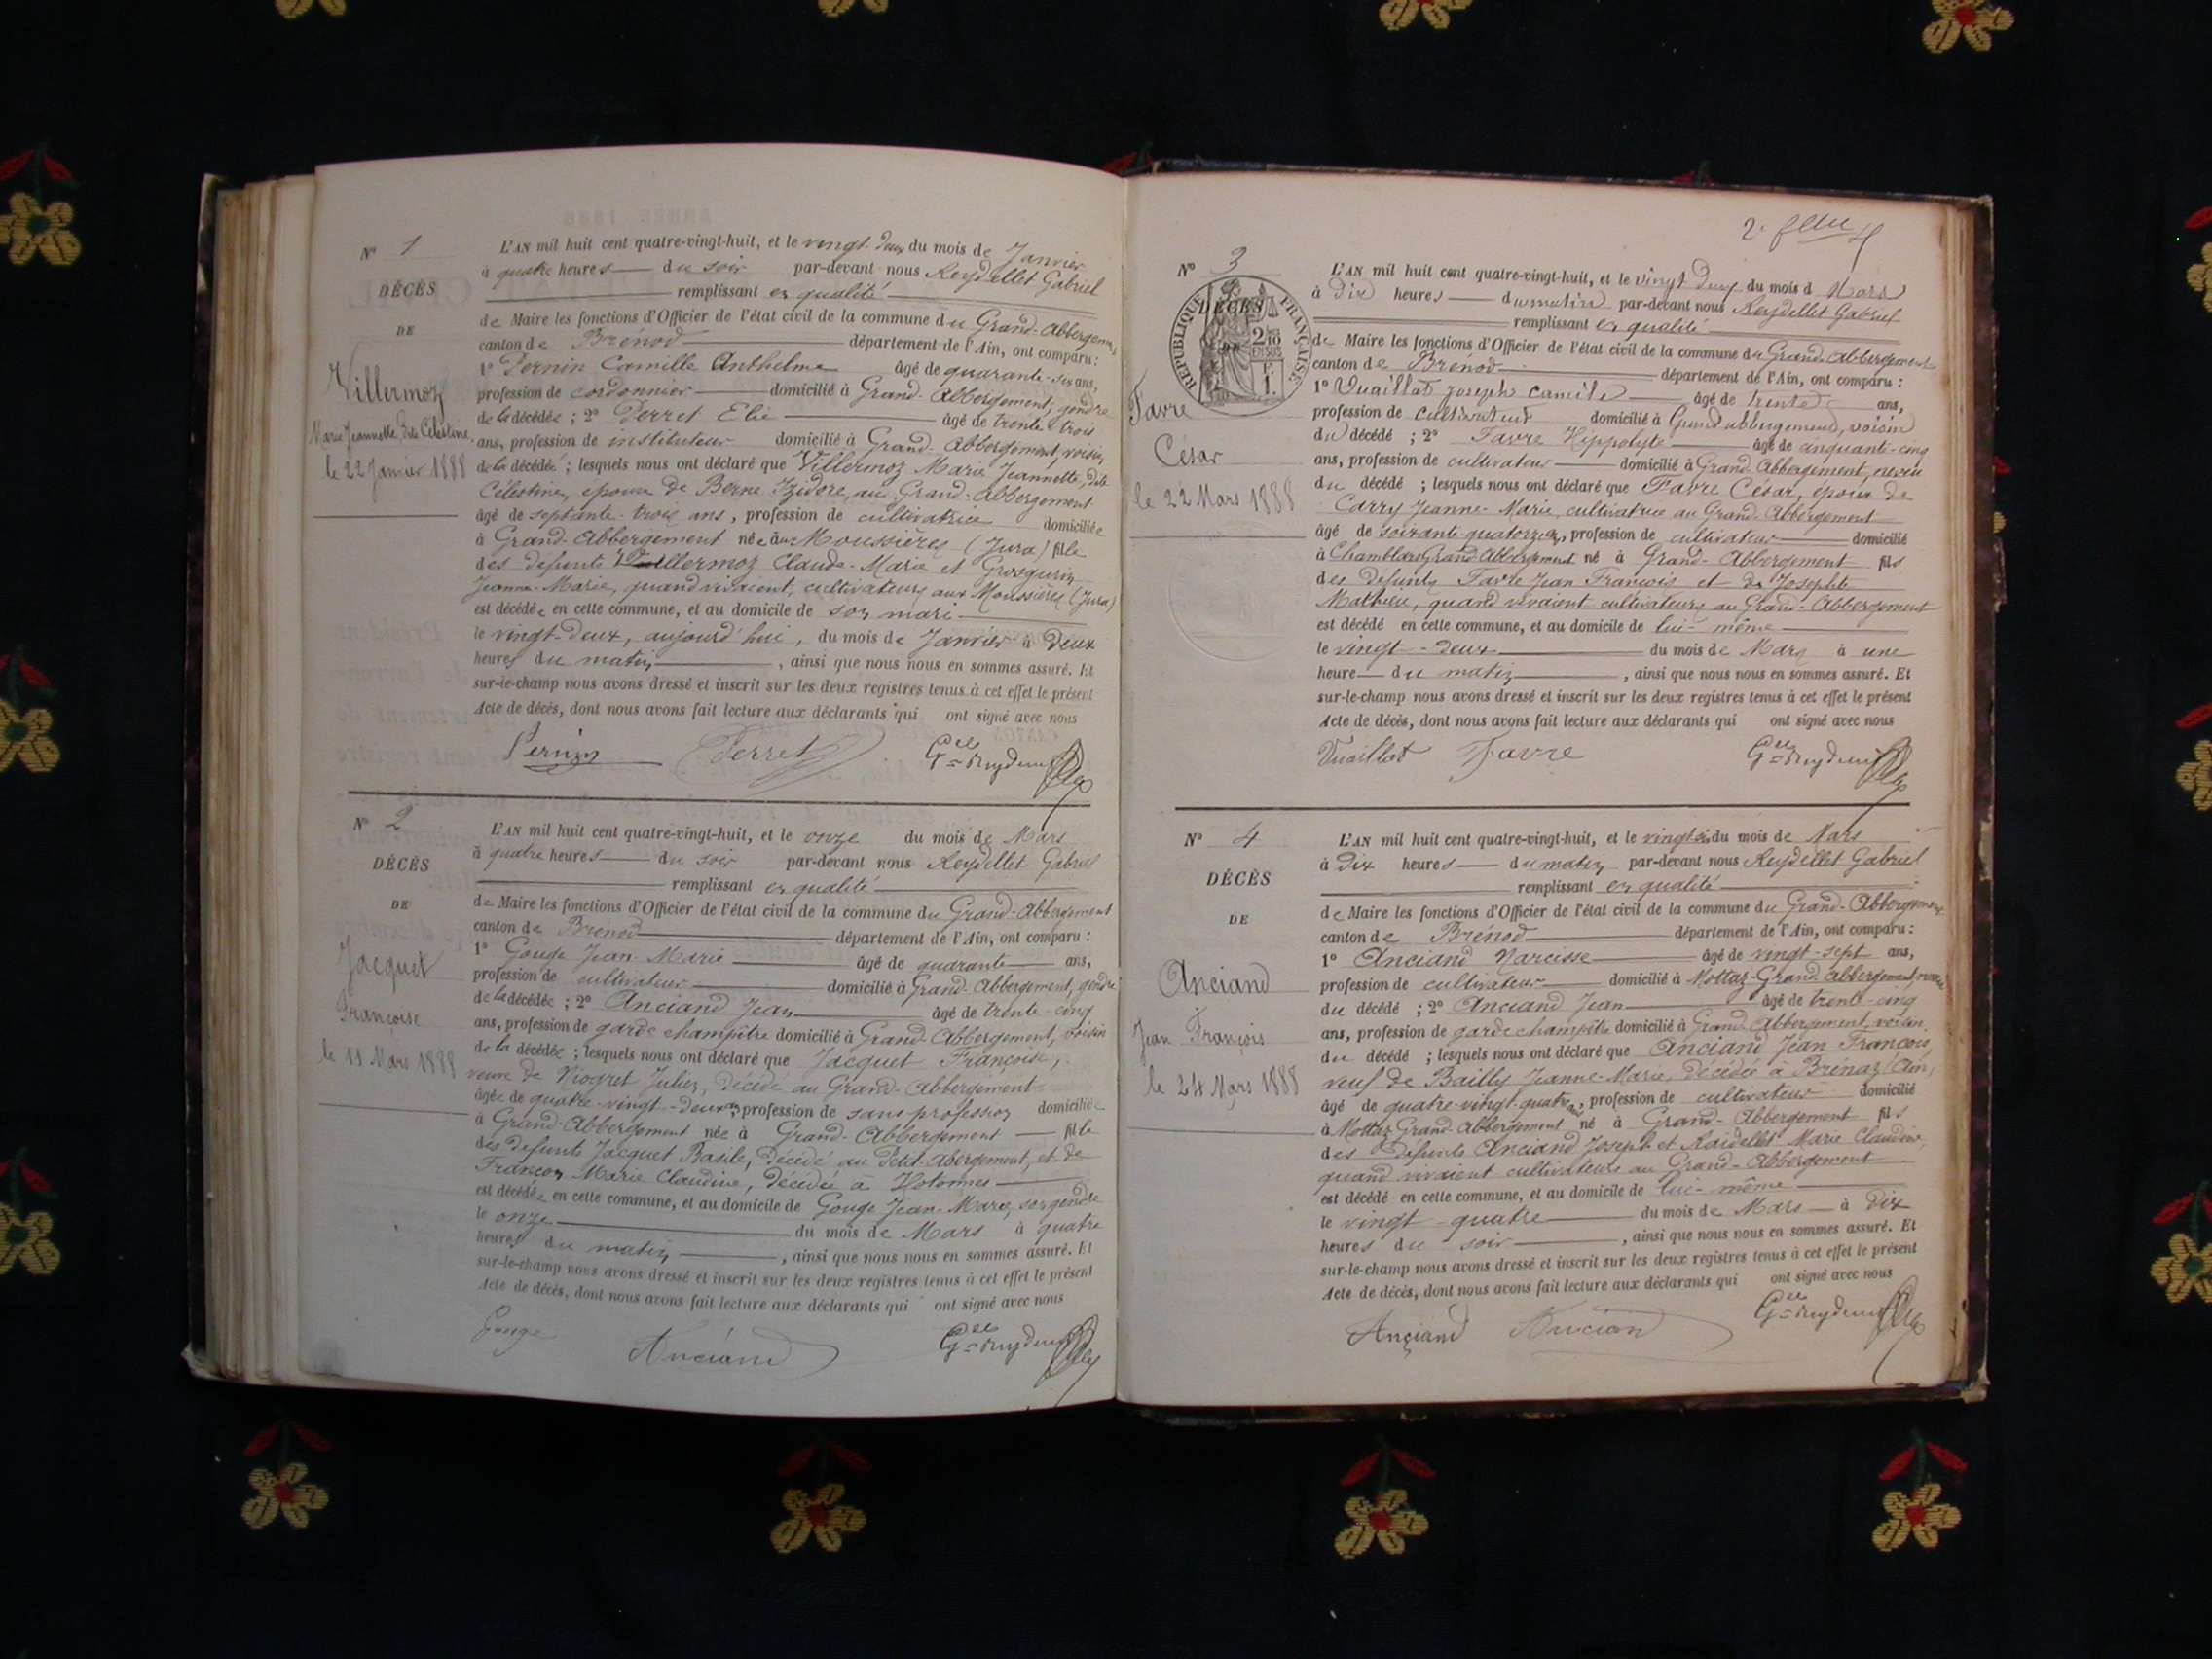 N° 1
DÉCÈS
DE
Villermoz
Marie Jeannette dite Célestine
le 22 Janvier 1888
L'AN mil huit cent quatre-vingt-huit, et le vingt-deux du mois de Janvier
à quatre heures du soir par-devant nous Reydellet Gabriel
remplissant en qualité
de Maire les fonctions d'Officier de l'état civil de la commune du Grand-Abbergement
canton de Brénod département de l'Ain, ont comparu :
1° Pernin Camille Anthelme âgé de quarante-six ans,
profession de cordonnier domicilié à Grand-Abbergement, gendre
de la décédée ; 2° Perret Elie âgé de trente trois
ans, profession de instituteur domicilié à Grand-Abbergement, voisin
de la décédée ; lesquels nous ont déclaré que Villermoz Marie Jeannette, dite
Célestine, épouse de Berne Izidore, au Grand-Abbergement
âgé de septante-trois ans, profession de cultivatrice domiciliée
à Grand-Abbergement née aux Moussières (Jura) fille
des défunts Villermoz Claude-Marie et Grosgurin
Jeanne-Marie, quand vivaient, cultivateurs aux Moussières (Jura)
est décédée en cette commune, et au domicile de son mari
le vingt-deux, aujourd'hui, du mois de Janvier à deux
heures du matin, ainsi que nous nous en sommes assuré. Et
sur-le-champ nous avons dressé et inscrit sur les deux registres tenus à cet effet le présent
Acte de décès, dont nous avons fait lecture aux déclarants qui ont signé avec nous
Pernin Perret
N° 2
DÉCÈS
DE
Jacquet
Françoise
le 11 Mars 1888
L'AN mil huit cent quatre-vingt-huit, et le onze du mois de Mars
à quatre heures du soir par-devant nous Reydellet Gabriel
remplissant en qualité
de Maire les fonctions d'Officier de l'état civil de la commune du Grand-Abbergement
canton de Brénod département de l'Ain, ont comparu :
1° Gouge Jean-Marie âgé de quarante ans,
profession de cultivateur domicilié à Grand-Abbergement, gendre
de la décédée ; 2° Anciand Jean âgé de trente-cinq
ans, profession de garde champêtre domicilié à Grand-Abbergement, voisin
de la décédée ; lesquels nous ont déclaré que Jacquet Françoise,
veuve de Niogret Julien, décédé au Grand-Abbergement
âgée de quatre-vingt-deux ans, profession de sans profession domiciliée
à Grand-Abbergement née à Grand-Abbergement fille
des défunts Jacquet Basile, décédé au Petit-Abergement, et de
Françon Marie Claudine, décédée à Hotonnes
est décédée en cette commune, et au domicile de Gouge Jean-Marie, son gendre
le onze du mois de Mars à quatre
heures du matin, ainsi que nous nous en sommes assuré. Et
sur-le-champ nous avons dressé et inscrit sur les deux registres tenus à cet effet le présent
Acte de décès, dont nous avons fait lecture aux déclarants qui ont signé avec nous
Gouge Anciand
N° 3
RÉPUBLIQUE FRANÇAISE
DÉCÈS
2/10
EN SUS
F
1.
Favre
César
le 22 Mars 1888
L'AN mil huit cent quatre-vingt-huit, et le vingt deux du mois d Mars
à dix heures du matin par-devant nous Reydellet Gabriel
remplissant en qualité
de Maire les fonctions d'Officier de l'état civil de la commune du Grand-Abbergement
canton de Brénod département de l'Ain, ont comparu :
1° Vuaillat Joseph Camile âgé de trente ans,
profession de cultivateur domicilié à Grand abbergement, voisin
du décédé ; 2° Favre Hippolyte âgé de cinquante-cinq
ans, profession de cultivateur domicilié à Grand-Abbergement, neveu
du décédé ; lesquels nous ont déclaré que Favre César, époux de
Carry Jeanne-Marie, cultivatrice au Grand-Abbergement
âgé de soixante-quatorze ans, profession de cultivateur domicilié
à Grand-Abbergement né à Grand-Abbergement fils
des défunts Favre Jean François et de Josephte
Mathieu, quand vivaient cultivateurs au Grand-Abbergement
est décédé en cette commune, et au domicile de lui-même
le vingt-deux du mois de Mars à une
heure du matin, ainsi que nous nous en sommes assuré. Et
sur-le-champ nous avons dressé et inscrit sur les deux registres tenus à cet effet le présent
Acte de décès, dont nous avons fait lecture aux déclarants qui ont signé avec nous
Vuaillat Favre
N° 4
DÉCÈS
DE
Anciand
Jean François
le 24 Mars 1888
L'AN mil huit cent quatre-vingt-huit, et le vingt six du mois de Mars
à dix heures du matin par-devant nous Reydellet Gabriel
remplissant en qualité
de Maire les fonctions d'Officier de l'état civil de la commune du Grand-Abbergement
canton de Brénod département de l'Ain, ont comparu :
1° Anciand Narcisse âgé de vingt-sept ans,
profession de cultivateur domicilié à Mottaz-Grand-Abbergement, neveu
du décédé ; 2° Anciand Jean âgé de trente-cinq
ans, profession de garde champêtre domicilié à Grand-Abbergement, voisin
du décédé ; lesquels nous ont déclaré que Anciand Jean François,
veuf de Bailly Jeanne-Marie, décédée à Brénaz (Ain)
âgé de quatre-vingt-quatre ans, profession de cultivateur domicilié
à Mottaz Grand-Abbergement né à Grand-Abbergement fils
des défunts Anciand Joseph et Raidellet Marie Claudine,
quand vivaient cultivateurs au Grand-Abbergement
est décédé en cette commune, et au domicile de lui-même
le vingt-quatre du mois de Mars à dix
heures du soir, ainsi que nous nous en sommes assuré. Et
sur-le-champ nous avons dressé et inscrit sur les deux registres tenus à cet effet le présent
Acte de décès, dont nous avons fait lecture aux déclarants qui ont signé avec nous
Anciand Anciand